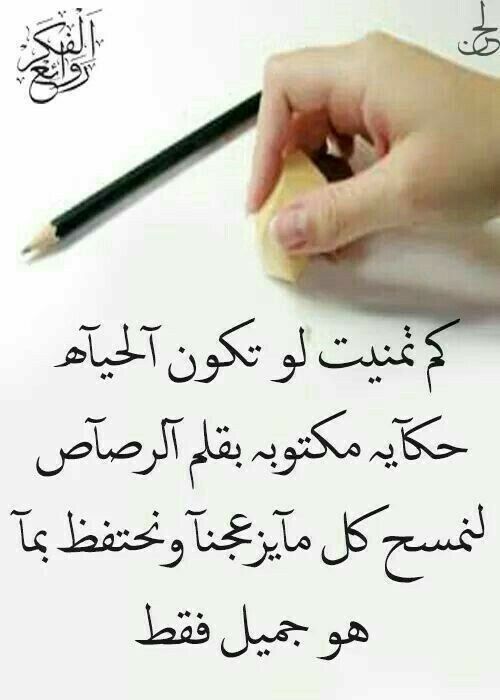 روائع الفكر
كم تمنيت لو تكون آلحيآه
حكآيه مكتوبه بقلم آلرصآص
لنمسح كل مآيزعجنآ ونحتفظ بمآ
هو جميل فقط